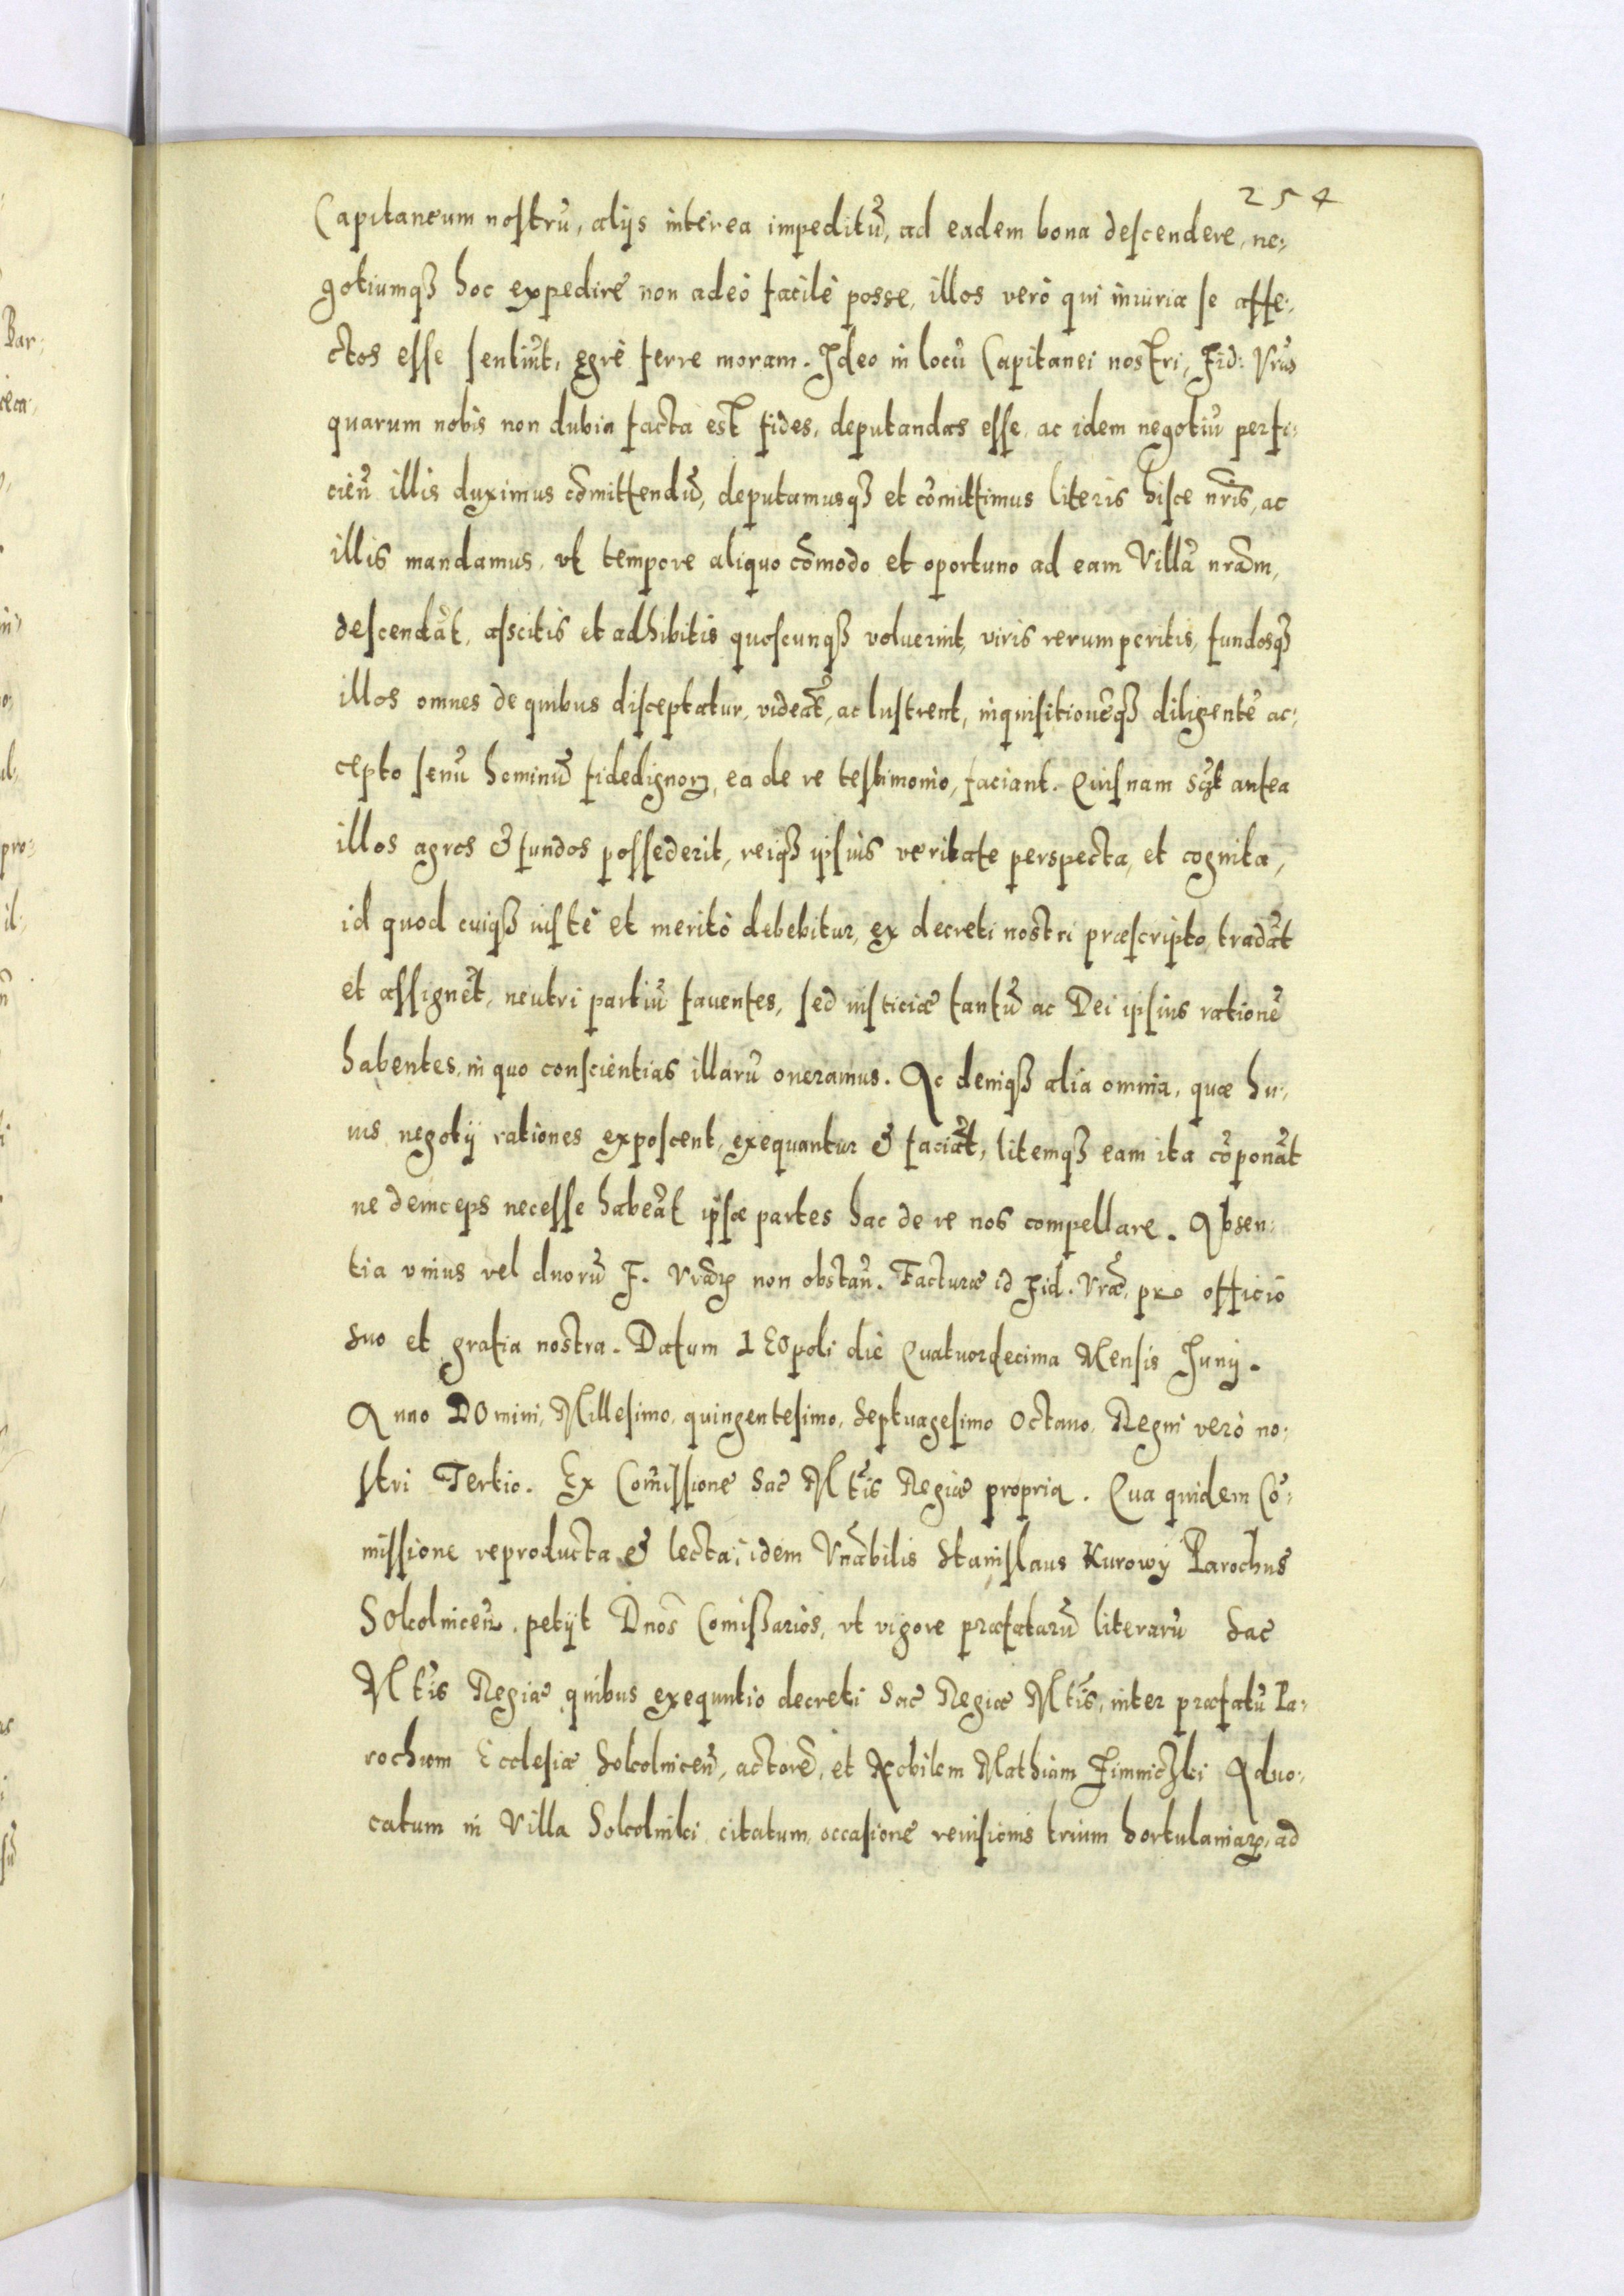 254
Capitaneum nostrũ, alijs interea impeditũ, ad eadem bona descendere, ne:
gotiumqȝ hoc expedire non adeò facilè posse, illos verò qui iniuria se affe:
ctos esse sentiũt, egrè ferre moram. Ideo in locũ Capitanei nostri, Fid: Vrãs
quarum nobis non dubia facta est fides, deputandas esse, ac idem negotiũ perfi:
cieñ illis duximus cõmittendũ, deputamusqȝ et cõmittimus literis hisce nr̃is, ac
illis mandamus, vt tempore aliquo cõmodo et oportuno ad eam Villã nrãm,
descendãt, ascitis et adhibitis quoscunqȝ voluerint, viris rerum peritis, fundosqȝ
illos omnes de quibus disceptatur, videãt, ac lustrent, inquisitionẽqȝ diligentẽ ac:
cepto senũ hominũ fidedignoꝝ, ea de re testimonio, faciant. Quisnam scȝt antea
illos agros & fundos possederit, reiqȝ ipsius veritate perspecta, et cognita,
id quod cuiqȝ iustè et meritò debebitur, ex decreti nostri præscripto, tradãt
et assignẽt, neutri partiũ fauentes, sed iusticiæ tantũ ac Dei ipsius rationẽ
habentes, in quo conscientias illarũ oneramus. Ac deniqȝ alia omnia, quæ hu:
ius negotij rationes exposcent, exequantur & faciãt, litemqȝ eam ita cõponãt
ne deinceps necesse habeãt ipsæ partes hac de re nos compellare. Absen:
tia vnius vel duorũ F. Vrãꝝ non obstañ. Facturæ id Fid. Vræ̃, pro officio
suo et gratia nostra. Datum LEOpoli die Quatuordecima Mensis Junij.
Anno DOmini, Millesimo, quingentesimo, Septuagesimo Octauo, Regni verò no:
stri Tertio. Ex Com̃issione Sac̃ Mt̃is Regiæ propria. Qua quidem Cõ:
missione reproducta & lecta, idem Vnãbilis Stanislaus Kurowÿ Parochus
SOkolniceñ. petijt Dnõs Com̃issarios, vt vigore præfatarũ literarũ Sac̃
Mt̃is Regiæ quibus exequutio decreti Sac̃ Regiæ Mt̃is, inter præfatũ Pa:
rochum Ecclesiæ Sokolniceñ, actorẽ, et Nobilem Mathiam Aduo:
catum in Villa Sokolniki citatum, occasione reuisionis trium hortulaniaꝝ, ad